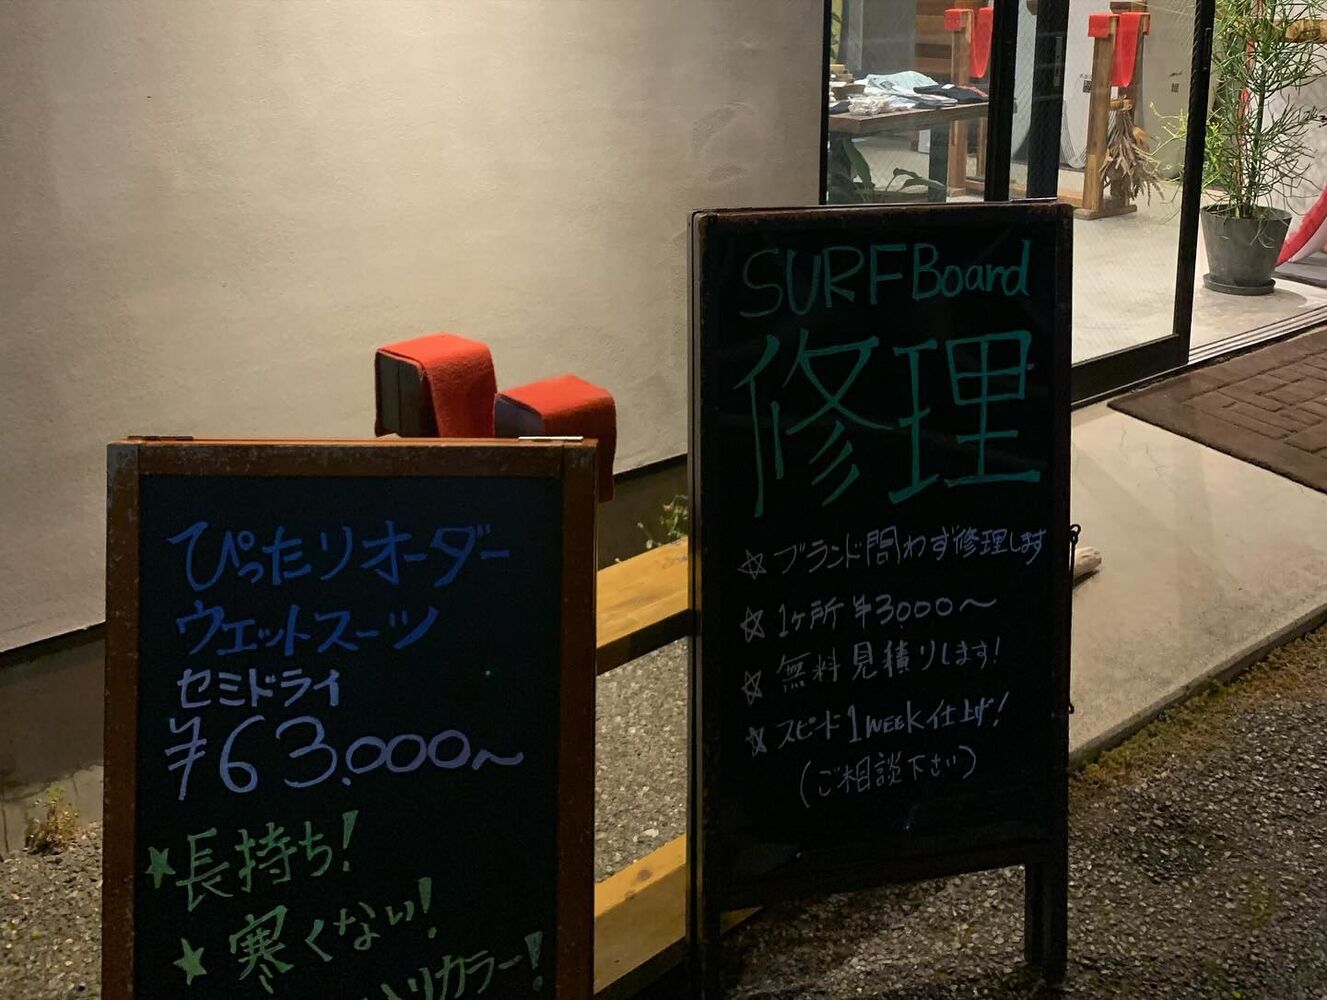 ぴったりオーダー
ウェットスーツ
セミドライ
¥63,000〜
★長持ち!
★寒くない!
カラー!
SURF Board
修理
☆ブランド問わず修理します
☆1ヶ所¥3,000〜
☆無料見積りします!
☆スピード1WEEK仕上げ!
(ご相談下さい)